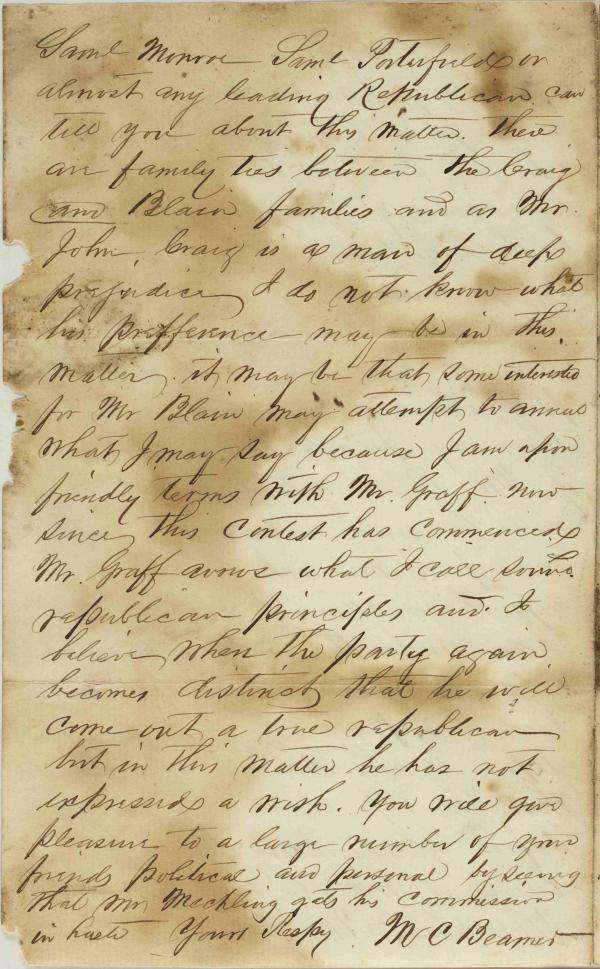 Saml Monroe Saml Porterfield or
almost any leading Republican can
tell you about this matter. there
are family ties between the Craig
and Blair families and as Mr.
John Craig is a man of deep
prejudice I do not know what
his prefference may be in this
matter. it may be that some interested
for Mr Blair may attempt to annul
what I may say because I am upon
friendly terms with Mr. Graff. now
since this contest has commenced
Mr. Graff avows what I call sound
republican principles and I
believe when the party again
becomes distinct that he will
come out a true republican
but in this matter he has not
expressed a wish. You will give
pleasure to a large number of your
friends political and personal by seeing
that Mr Mechling gets his commission
in haste Yours Respy. M C Beamer